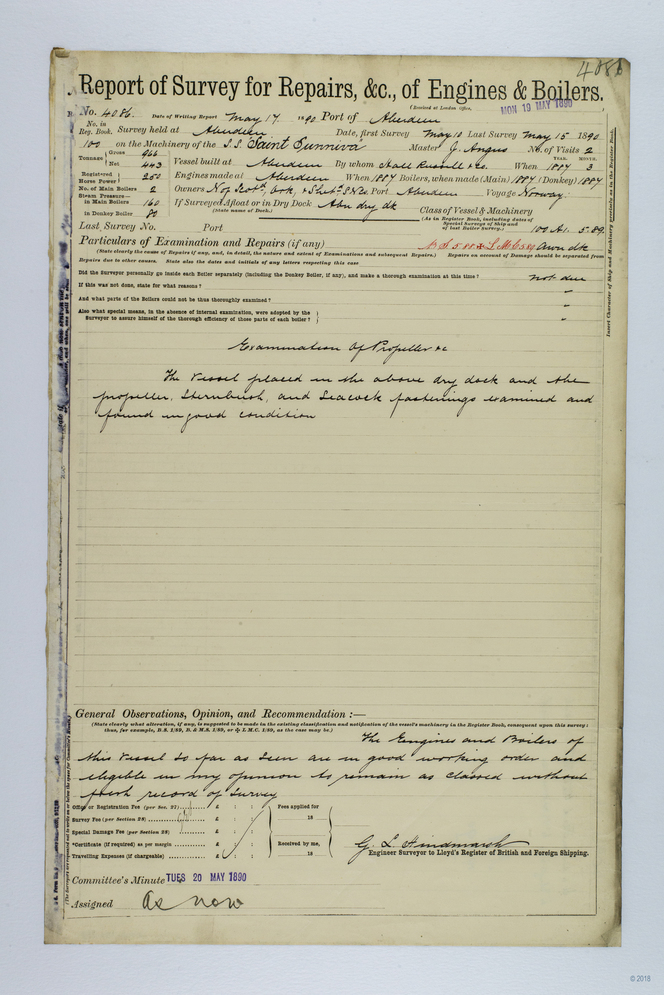 4086
Report of Survey for Repairs, &c., of Engines & Boilers.
(Received at London Office,
MON 19 MAY 1890
No. 4086. Date of Writing Report May 17. 1890 Port of Aberdeen
No. in Reg. Book. Survey held at Aberdeen Date, first Survey May 10 Last Survey May 15 1890
100 on the Machinery of the S.S. "Saint Sunniva" Master J. Angus No. of Visits 2
Tonnage Gross 966 Net 443 Vessel built at Aberdeen By whom Hall Russell & Co. When YEAR. 1887 MONTH. 3
Registered Horse Power 250 Engines made at Aberdeen When 1887 Boilers, when made (Main) 1887 (Donkey) 1887
No. of Main Boilers 2 Owners No. of Scotd, Ork, & Shetd S N Co. Port Aberdeen Voyage Norway.
Steam Pressure— in Main Boilers 160 If Surveyed Afloat or in Dry Dock Abn dry dk
(State name of Dock.)
in Donkey Boiler 80
Class of Vessel & Machinery
(As in Register Book, including dates of Special Surveys of Ship and of last Boiler Survey.)
100 A1. 5.89
Last Survey No. Port
Particulars of Examination and Repairs (if any)
(State clearly the cause of Repairs if any, and, in detail, the nature and extent of Examinations and subsequent Repairs.) Repairs on account of Damage should be separated from
Repairs due to other causes. State also the dates and initials of any letters respecting this case
Did the Surveyor personally go inside each Boiler separately (including the Donkey Boiler, if any), and make a thorough examination at this time? not due
If this was not done, state for what reasons? "
And what parts of the Boilers could not be thoroughly examined? "
Also what special means, in the absence of internal examination, were adopted by the
Surveyor to assure himself of the thorough efficiency of those parts of each boiler? "
Examination of Propeller &c
The Vessel placed in the above dry dock and the
propeller, Sternbush, and Seacock fastenings examined and
found in good condition
General Observations, Opinion, and Recommendation :—
(State clearly what alteration, if any, is suggested to be made in the existing classification and notification of the vessel's machinery in the Register Book, consequent upon this survey:
thus, for example, B.S. 1/89, B. & M.S. 1/89, or ✠ L.M.C. 1/89, as the case may be.)
The Engines and Boilers of
this Vessel so far as seen are in good working order and
eligible in my opinion to remain as classed without
fresh record of Survey
Office or Registration Fee (per Sec. 27) £ : : Fees applied for
Survey Fee (per Section 28) £ : : 18
Special Damage Fee (per Section 28) £ : :
*Certificate (if required) as per margin £ : : Received by me,
Travelling Expenses (if chargeable) £ : : 18
G. L. Hindmarsh
Engineer Surveyor to Lloyd's Register of British and Foreign Shipping.
Committee's Minute TUES 20 MAY 1890
Assigned As now
Insert Character of Ship and Machinery precisely as in the Register Book.
© 2018